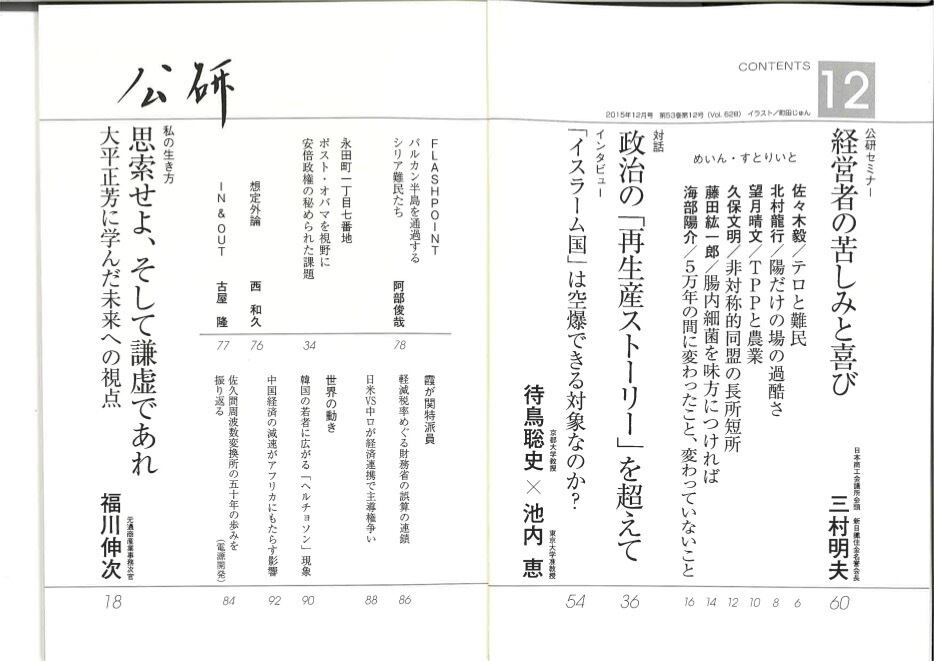 CONTENTS
12
2015年12月号 第53巻第12号（Vol. 628） イラスト／町田じゅん
公研セミナー
経営者の苦しみと喜び
日本商工会議所会頭 新日鐵住金名誉会長
三村明夫
60
めいん・すとりいと
佐々木毅／テロと難民
6
北村龍行／陽だけの場の過酷さ
8
望月晴文／TPPと農業
10
久保文明／非対称的同盟の長所短所
12
藤田紘一郎／腸内細菌を味方につければ
14
海部陽介／5万年の間に変わったこと、変わっていないこと
16
対話
政治の「再生産ストーリー」を超えて
36
インタビュー
「イスラーム国」は空爆できる対象なのか?
54
京都大学教授
待鳥聡史×池内 恵
東京大学准教授
公研
FLASHPOINT
バルカン半島を通過する
シリア難民たち
阿部俊哉
78
永田町一丁目七番地
ポスト・オバマを視野に
安倍政権の秘められた課題
34
想定外論
西 和久
76
IN & OUT
古屋 隆
77
霞が関特派員
軽減税率めぐる財務省の誤算の連鎖
86
日米VS中ロが経済連携で主導権争い
88
世界の動き
韓国の若者に広がる「ヘルチョソン」現象
90
中国経済の減速がアフリカにもたらす影響
92
佐久間周波数変換所の五十年の歩みを
振り返る
（電源開発）
84
私の生き方
思索せよ、そして謙虚であれ
大平正芳に学んだ未来への視点
元通商産業事務次官
福川伸次
18